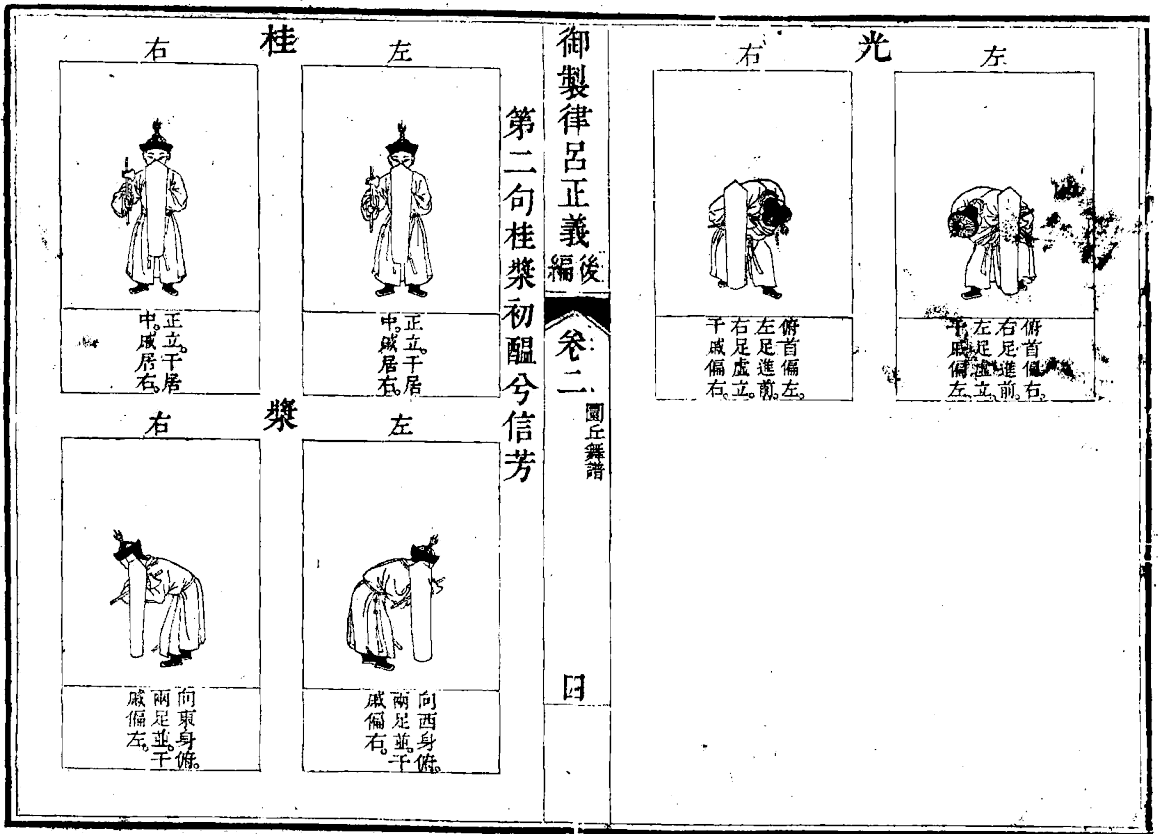 光
左
俯首偏右。
右足進前。
左足虛立。
干戚偏左。
右
俯首偏左。
左足進前。
右足虛立。
干戚偏右。
御製律呂正義後編
卷二
圜丘舞譜
四
第二句桂漿初醞兮信芳
桂
左
正立。干居
中。戚居右。
右
正立。干居
中。戚居右。
漿
左
向西身俯。
兩足並。干
戚偏右。
右
向東身俯。
兩足並。干
戚偏左。